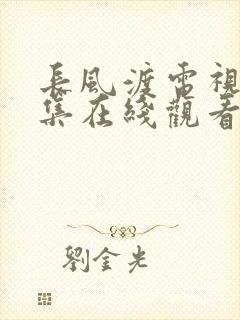 長風渡電視
集在綫觀看
劉金光